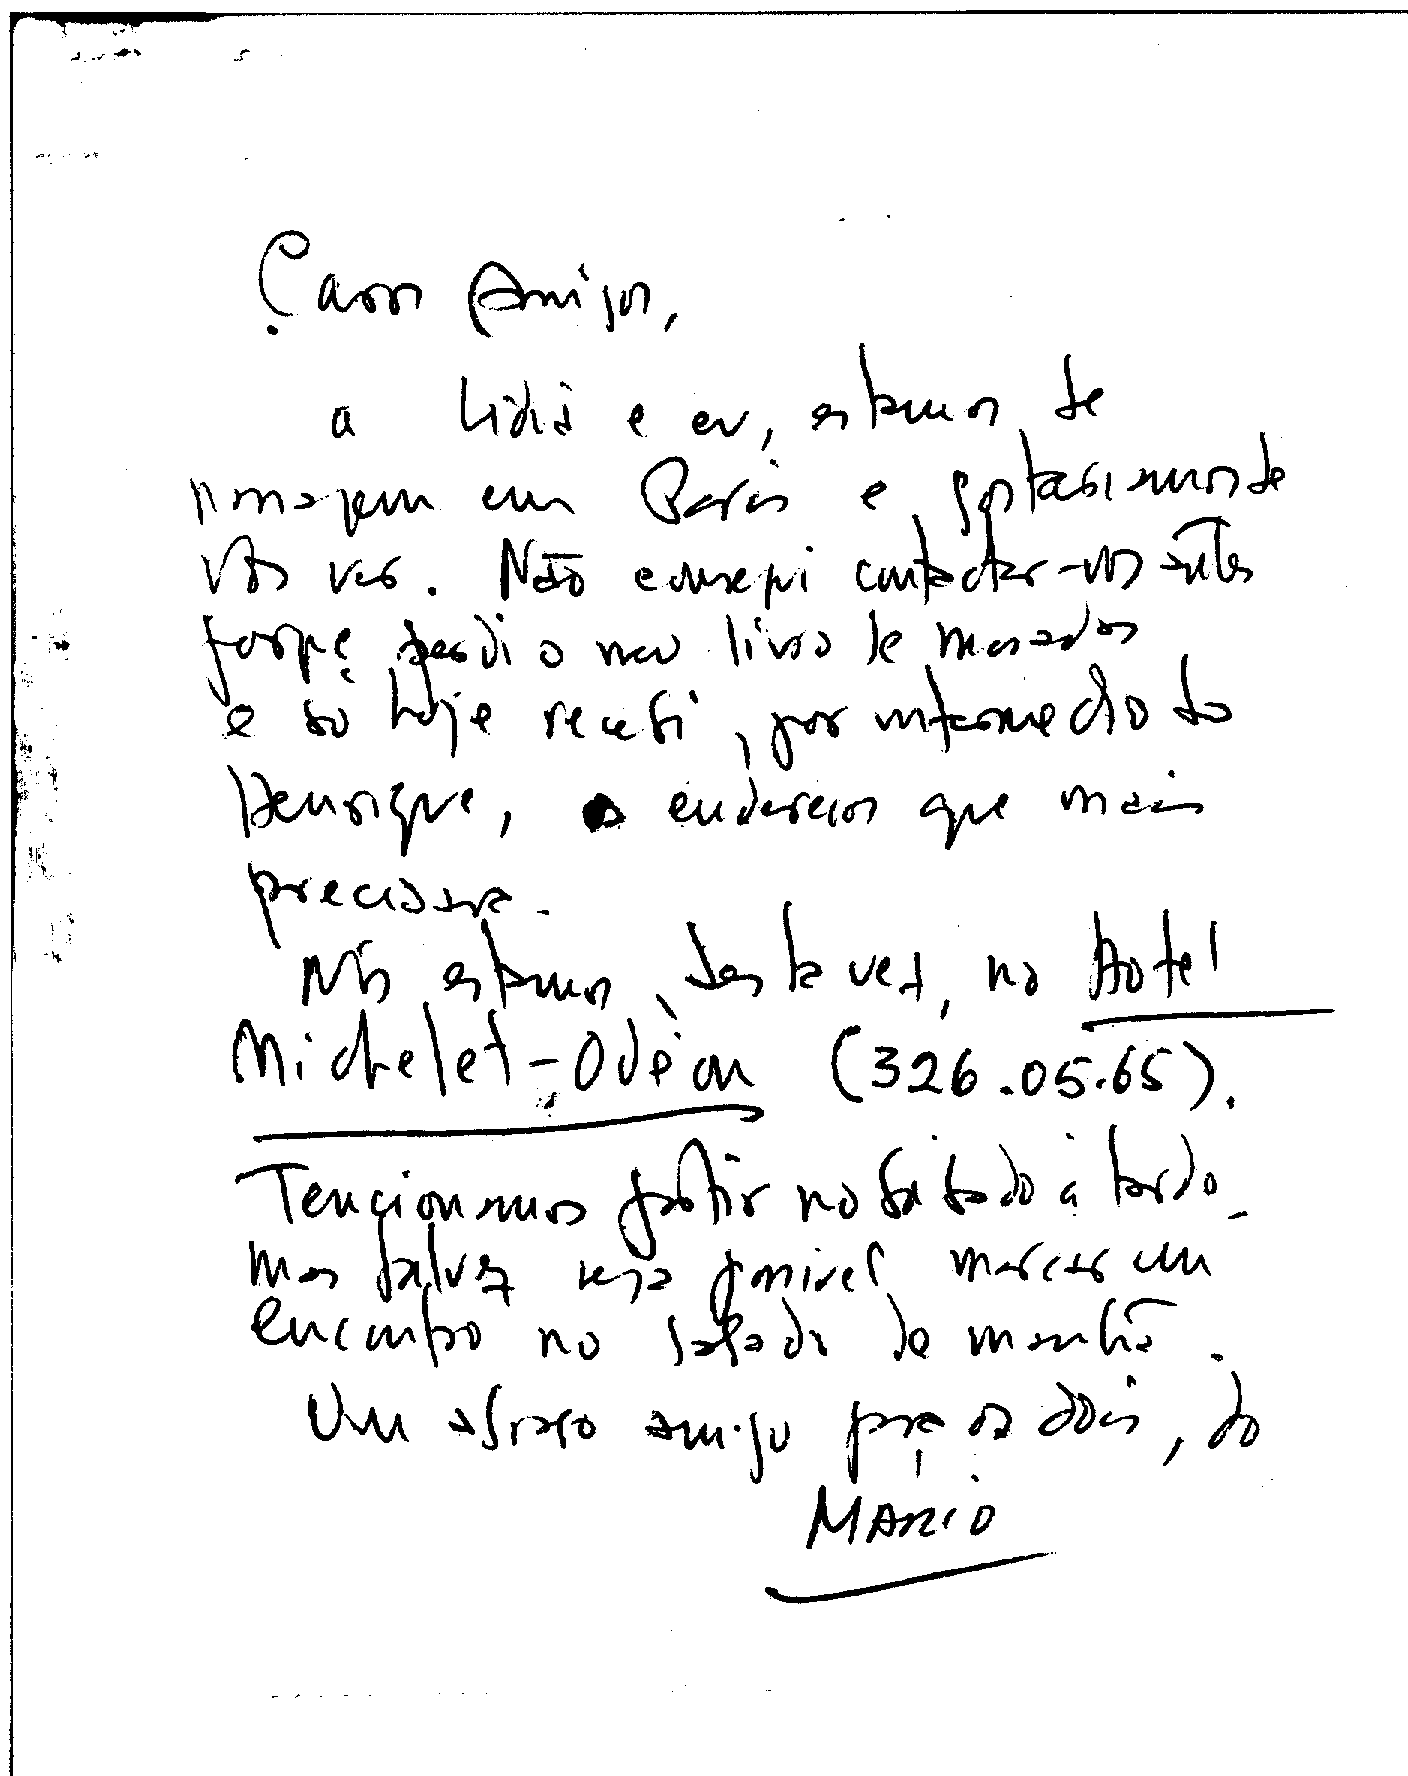 Caros Amigos,
a Lídia e eu, estamos de
passagem em Paris e gostaríamos de
vos ver. Não consegui contactar-vos antes
porque perdi o meu livro de moradas
e só hoje recebi, por intermédio do
Henrique, os endereços que mais
precisava.
Nós estamos, desta vez, no Hotel
Michelet-Odéon (326.05.65).
Tencionamos partir no sábado à tarde
mas talvez seja possível marcar um
encontro no sábado de manhã.
Um abraço amigo para os dois, do
MÁRIO